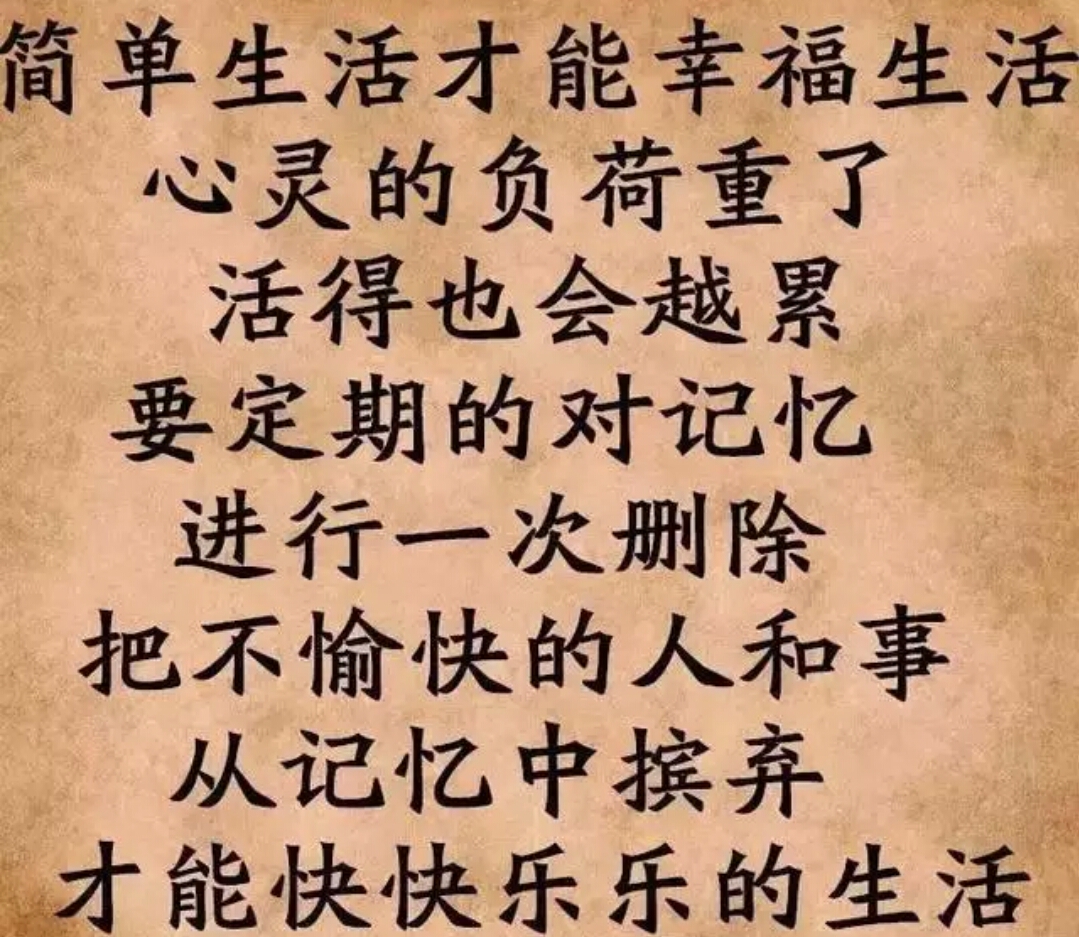 简单生活才能幸福生活
心灵的负荷重了
活得也会越累
要定期的对记忆
进行一次删除
把不愉快的人和事
从记忆中摈弃
才能快快乐乐的生活